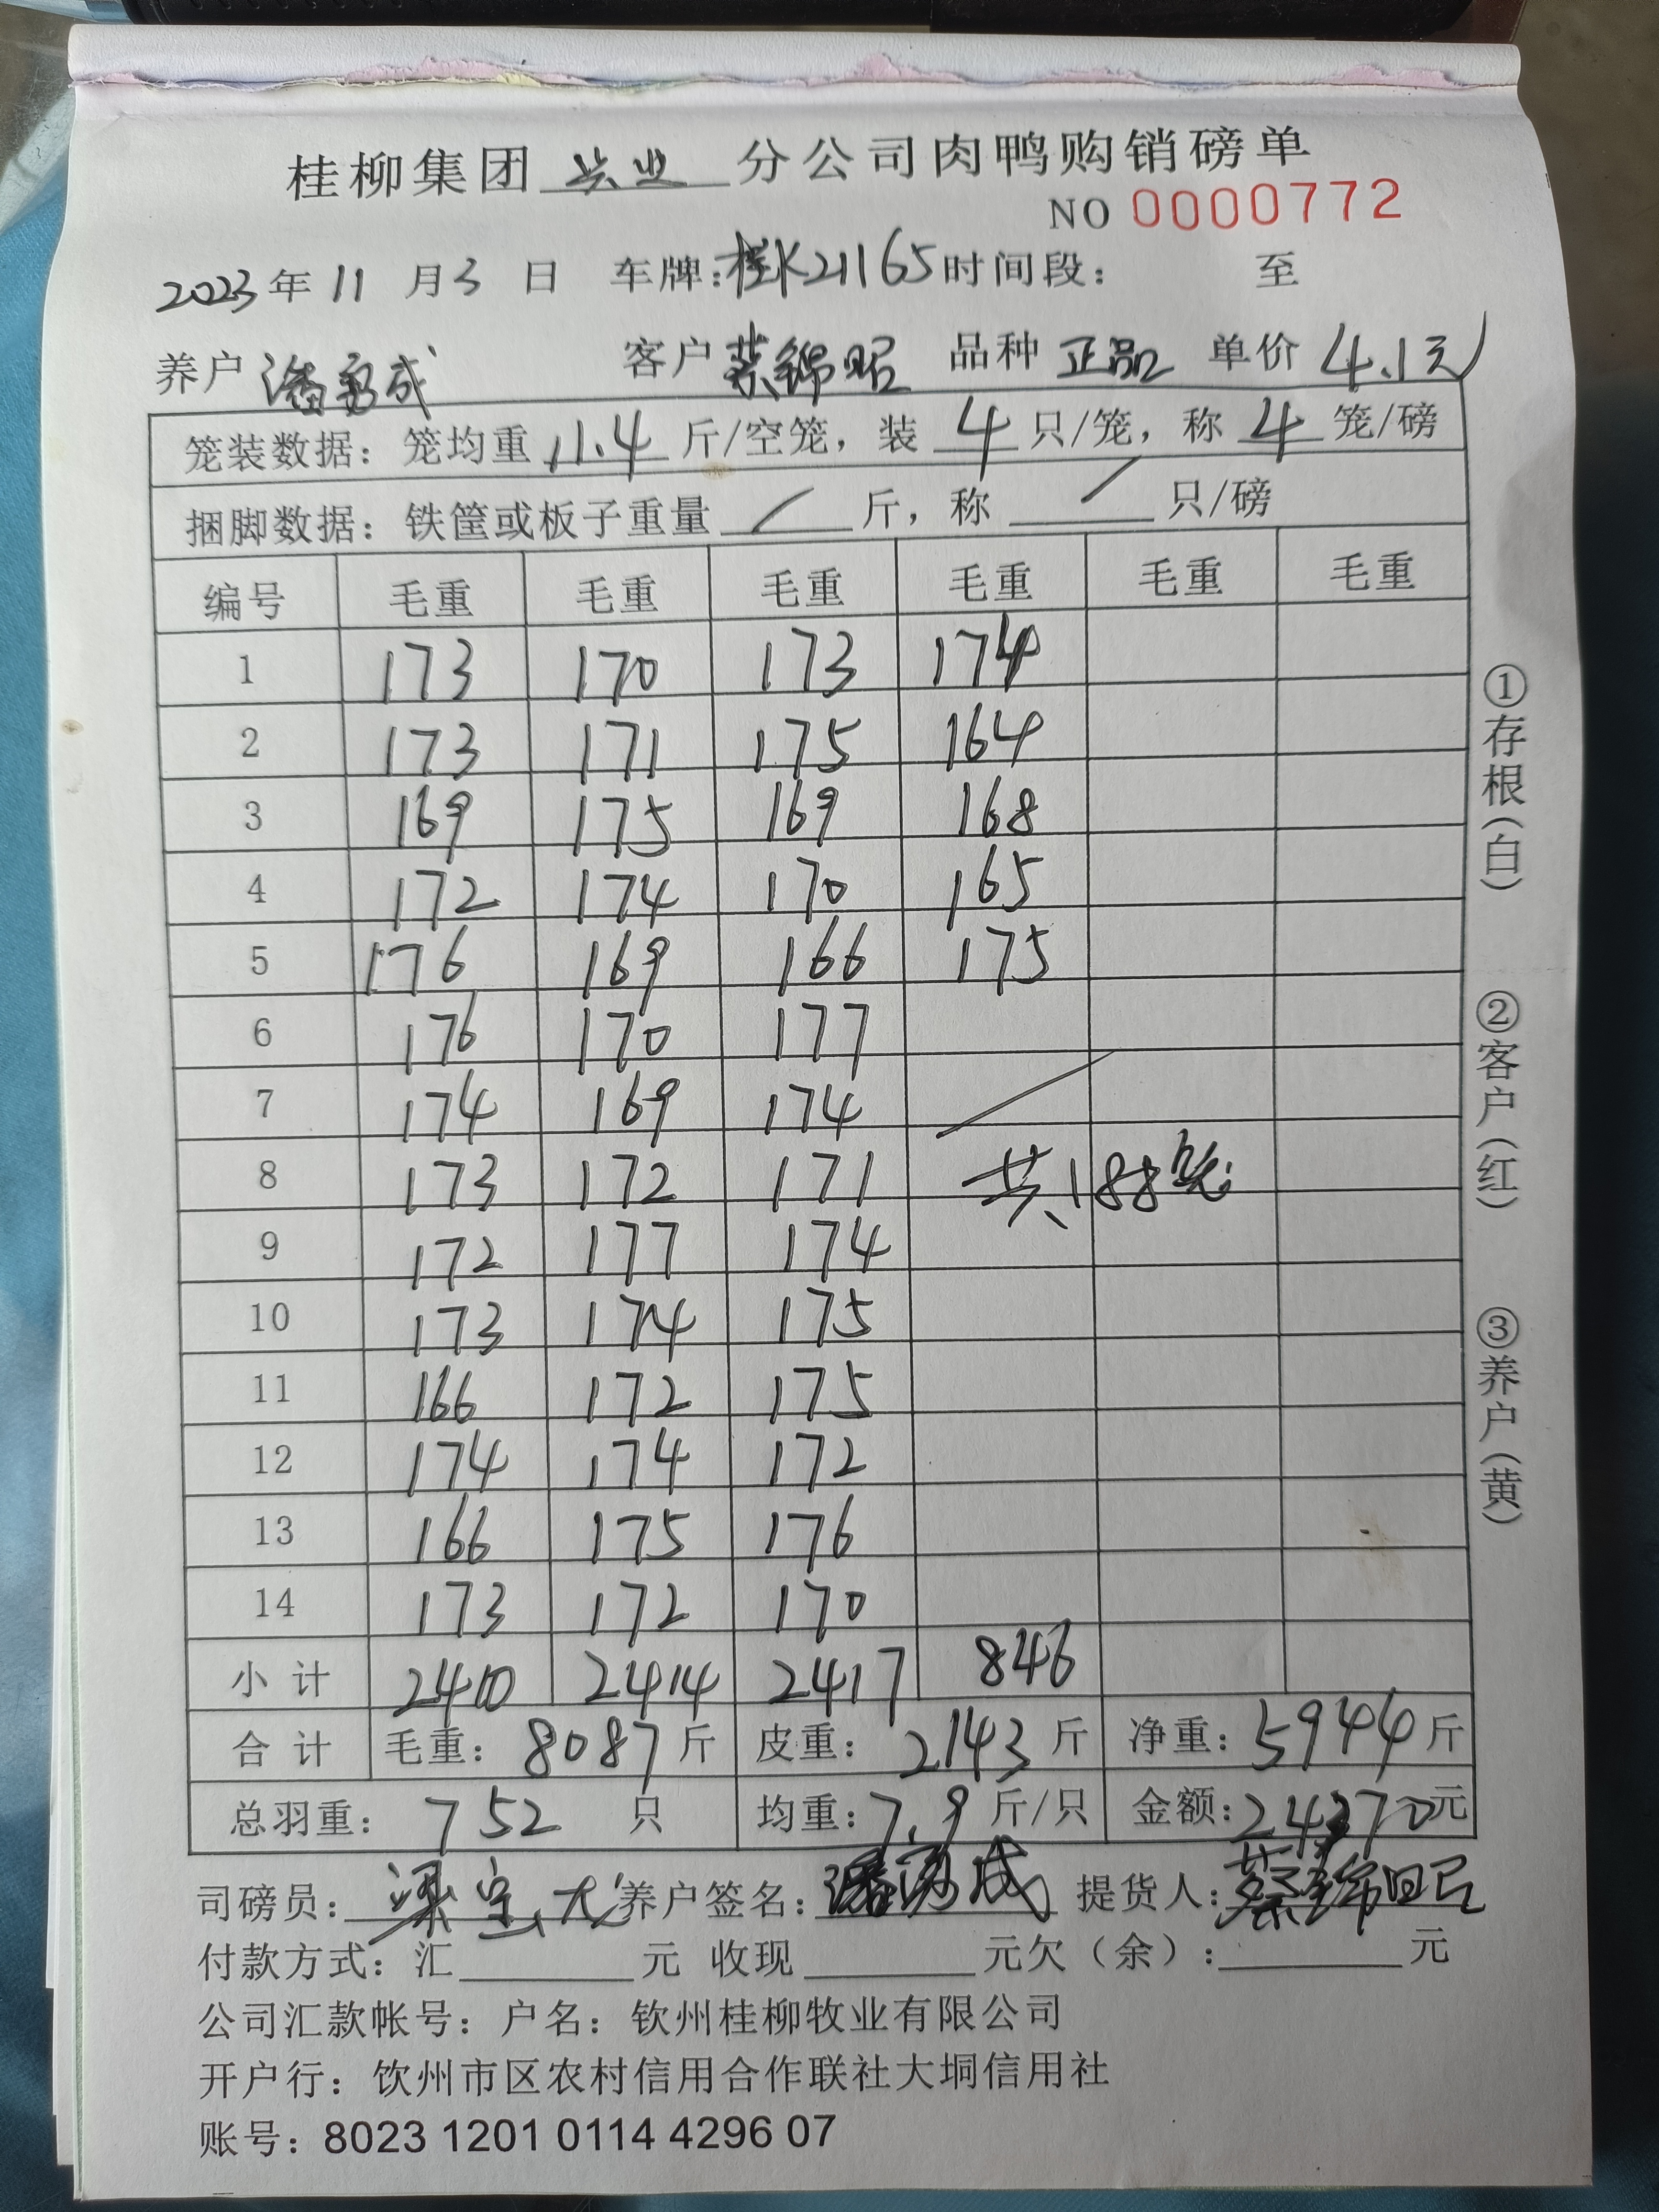 桂柳集团 兴业 分公司肉鸭购销磅单
NO 0000772
2023年11月3日 车牌:桂K21165时间段: 至
养户 潘勇成 客户 蔡锦昭 品种 正品 单价 4.1元
笼装数据:笼均重 11.4 斤/空笼,装 4 只/笼,称 4 笼/磅
捆脚数据:铁筐或板子重量 / 斤,称 / 只/磅
编号 毛重 毛重 毛重 毛重 毛重 毛重
1 173 170 173 174
2 173 171 175 164
3 169 175 169 168
4 172 174 170 165
5 176 169 166 175
6 176 170 177
7 174 169 174
8 173 172 171 共188笼
9 172 177 174
10 173 174 175
11 166 172 175
12 174 174 172
13 166 175 176
14 173 172 170
小计 2410 2414 2417 846
合计 毛重:8087斤 皮重:2143斤 净重:5944斤
总羽重:752 只 均重:7.9斤/只 金额:24370元
司磅员:梁宝 养户签名:潘勇成 提货人:蔡锦昭
付款方式:汇 元 收现 元欠(余): 元
公司汇款帐号:户名:钦州桂柳牧业有限公司
开户行:钦州市区农村信用合作联社大垌信用社
账号:8023 1201 0114 4296 07
①存根(白)
②客户(红)
③养户(黄)